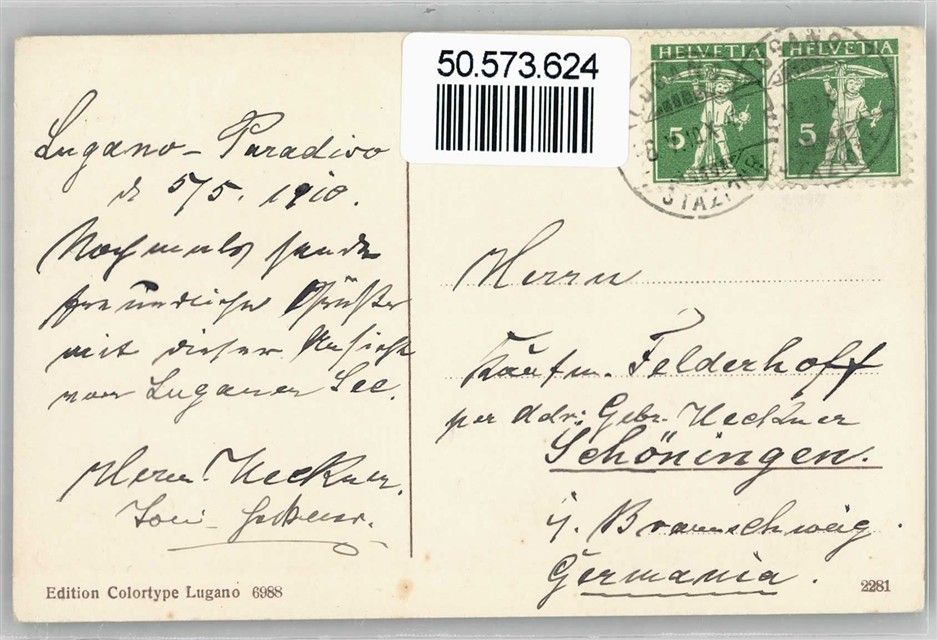 50.573.624
HELVETIA HELVETIA
5 5
LUGANO
STAZ
Lugano – Paradiso
d. 5/5. 1910.
Nochmals sende
freundliche Grüße
mit dieser Ansicht
vom Luganer See.
Herm. Heckner.
Herrn
Kaufm. Felderhoff
per Adr: Gebr. Heckner
Schöningen.
i. Braunschweig.
Germania.
Edition Colortype Lugano 6988
2281